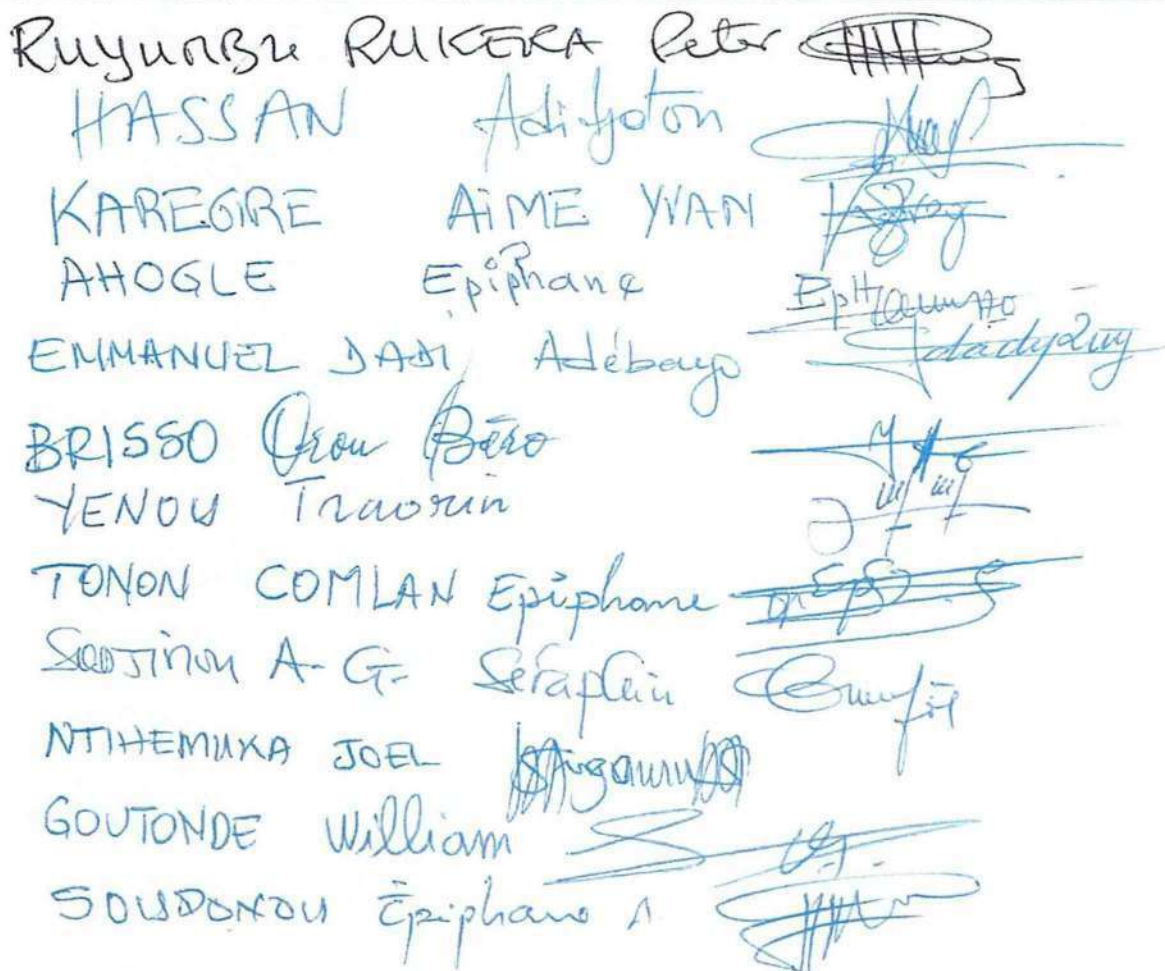 RUYUMBU RUKERA Peter
HASSAN Adidjoton
KAREGIRE AiME YVAN
AHOGLE Epiphane
EMMANUEL DADI Adébayo
BRISSO Orou Béro
YENOU Traorin
TONON COMLAN Epiphane
A- G- Séraphin
NTIHEMUKA JOEL
GOUTONDE William
SOUDONOU Épiphane A.